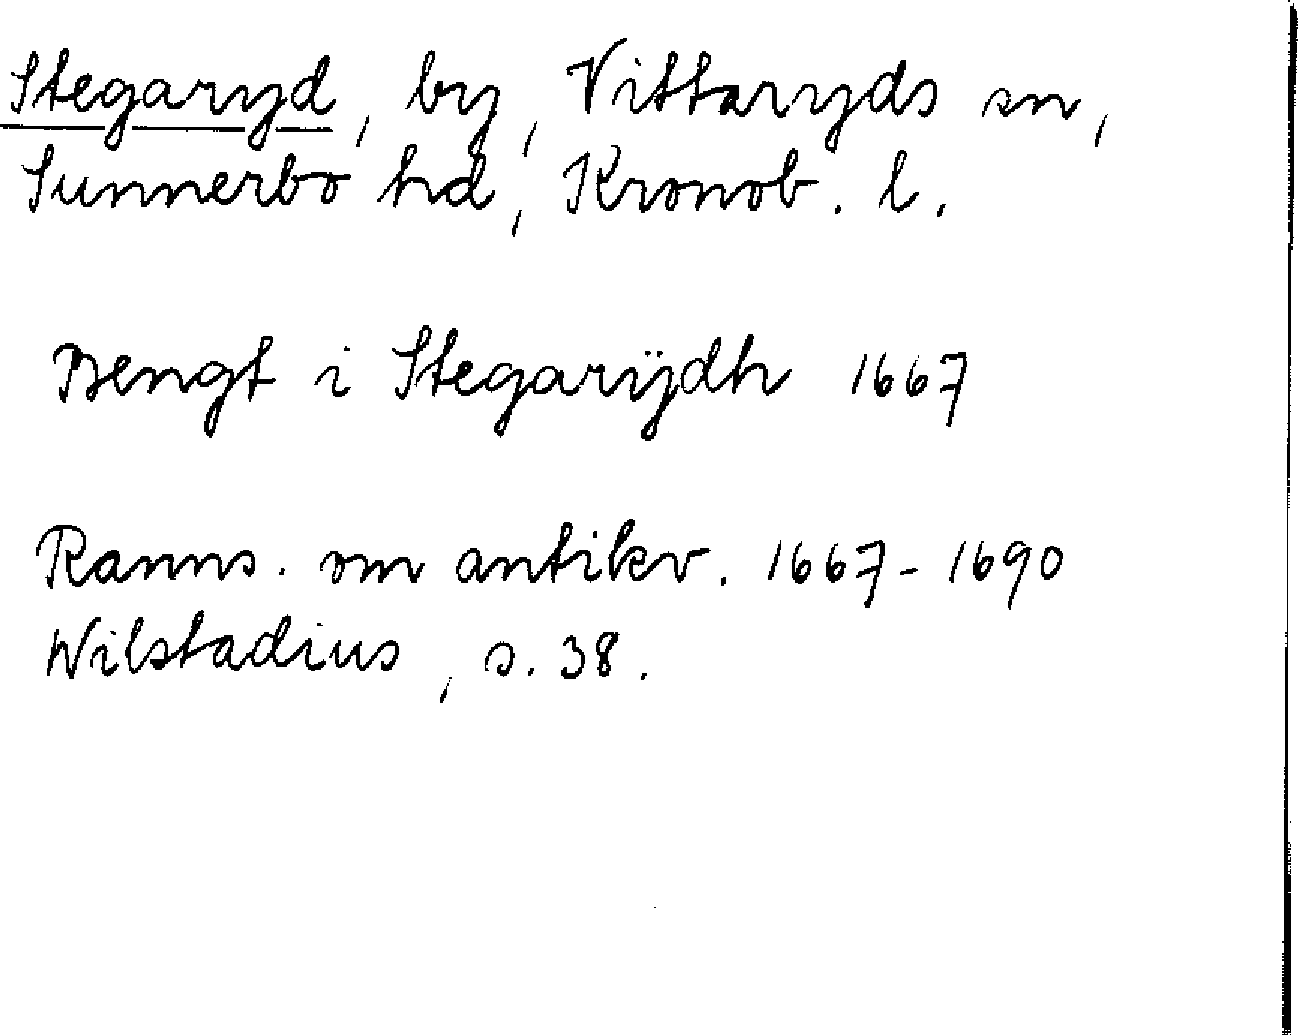 Stegaryd, by, Vittaryds sn,
Sunnerbo hd, Kronob. l.
Bengt i Stegarÿdh 1667
Ranns. om antikv. 1667-1690
Wilstadius, s. 38.